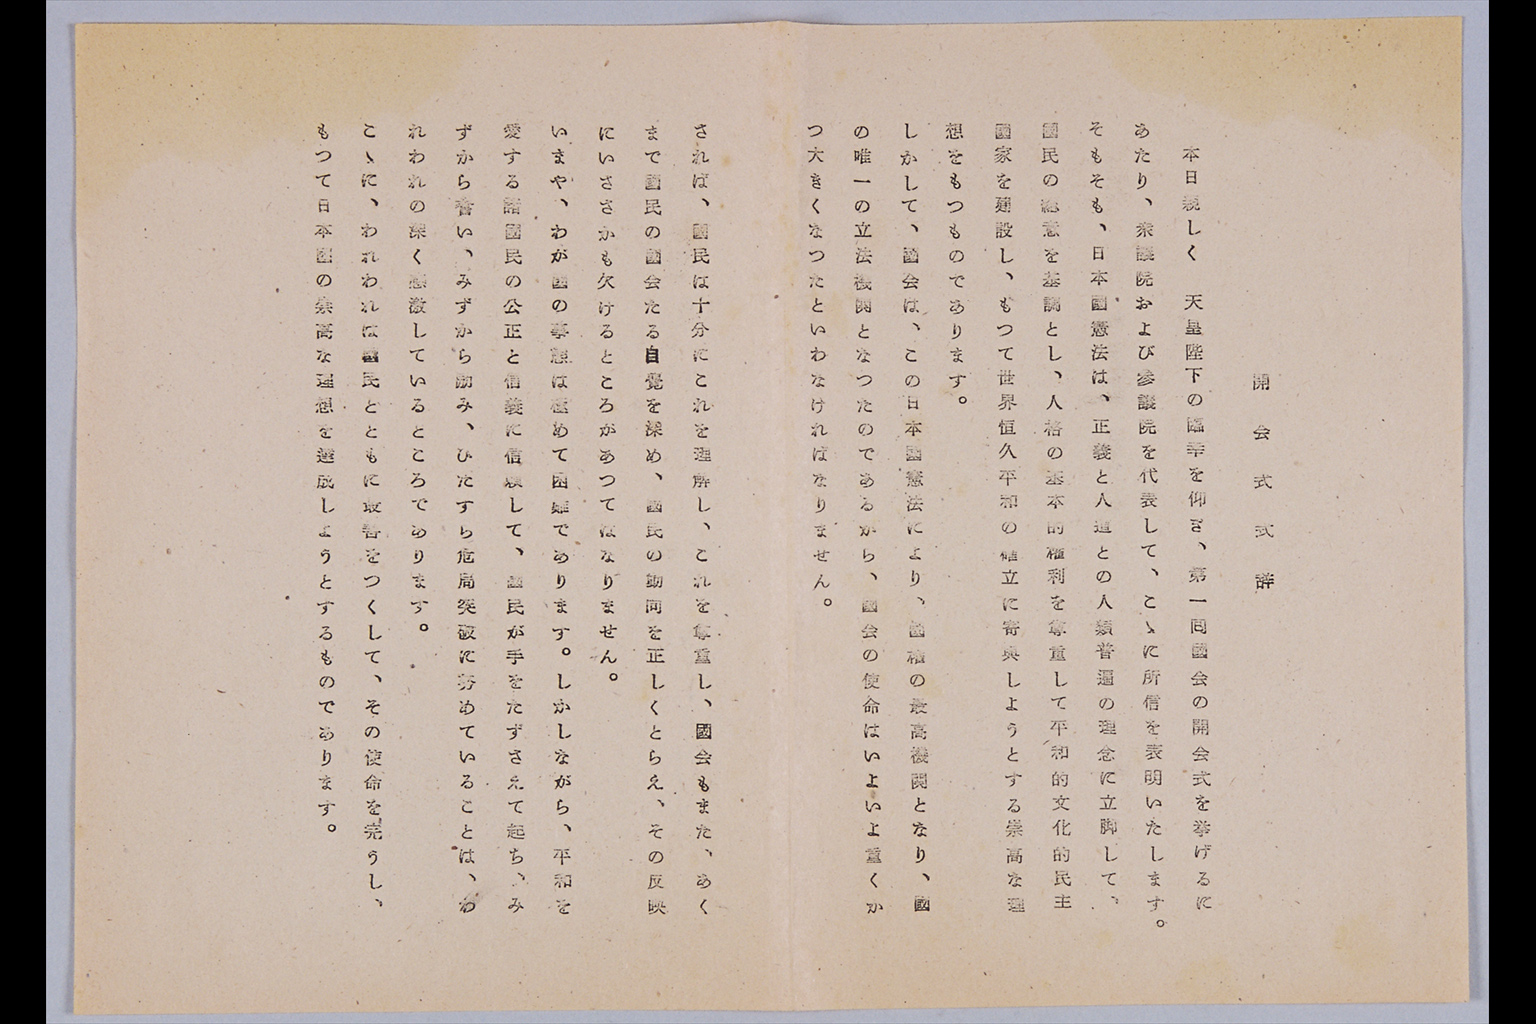 開会式式辞
本日親しく　天皇陛下の臨幸を仰ぎ、第一回國会の開会式を挙げるに
あたり、衆議院および参議院を代表して、こゝに所信を表明いたします。
そもそも、日本國憲法は、正義と人道との人類普遍の理念に立脚して、
國民の総意を基調とし、人格の基本的権利を尊重して平和的文化的民主
國家を建設し、もつて世界恒久平和の確立に寄與しようとする崇高な理
想をもつものであります。
しかして、國会は、この日本國憲法により、國権の最高機関となり、國
の唯一の立法機関となつたのであるから、國会の使命はいよいよ重くか
つ大きくなつたといわなければなりません。
されば、國民は十分にこれを理解し、これを尊重し、國会もまた、あく
まで國民の國会たる自覺を深め、國民の動向を正しくとらえ、その反映
にいささかも欠けるところがあつてはなりません。
いまや、わが國の事態は極めて困難であります。しかしながら、平和を
愛する諸國民の公正と信義に信頼して、國民が手をたずさえて起ち、み
ずから誓い、みずから励み、ひたすら危局突破に努めていることは、わ
れわれの深く感激しているところであります。
こゝに、われわれは國民とともに最善をつくして、その使命を完うし、
もつて日本國の崇高な理想を達成しようとするものであります。